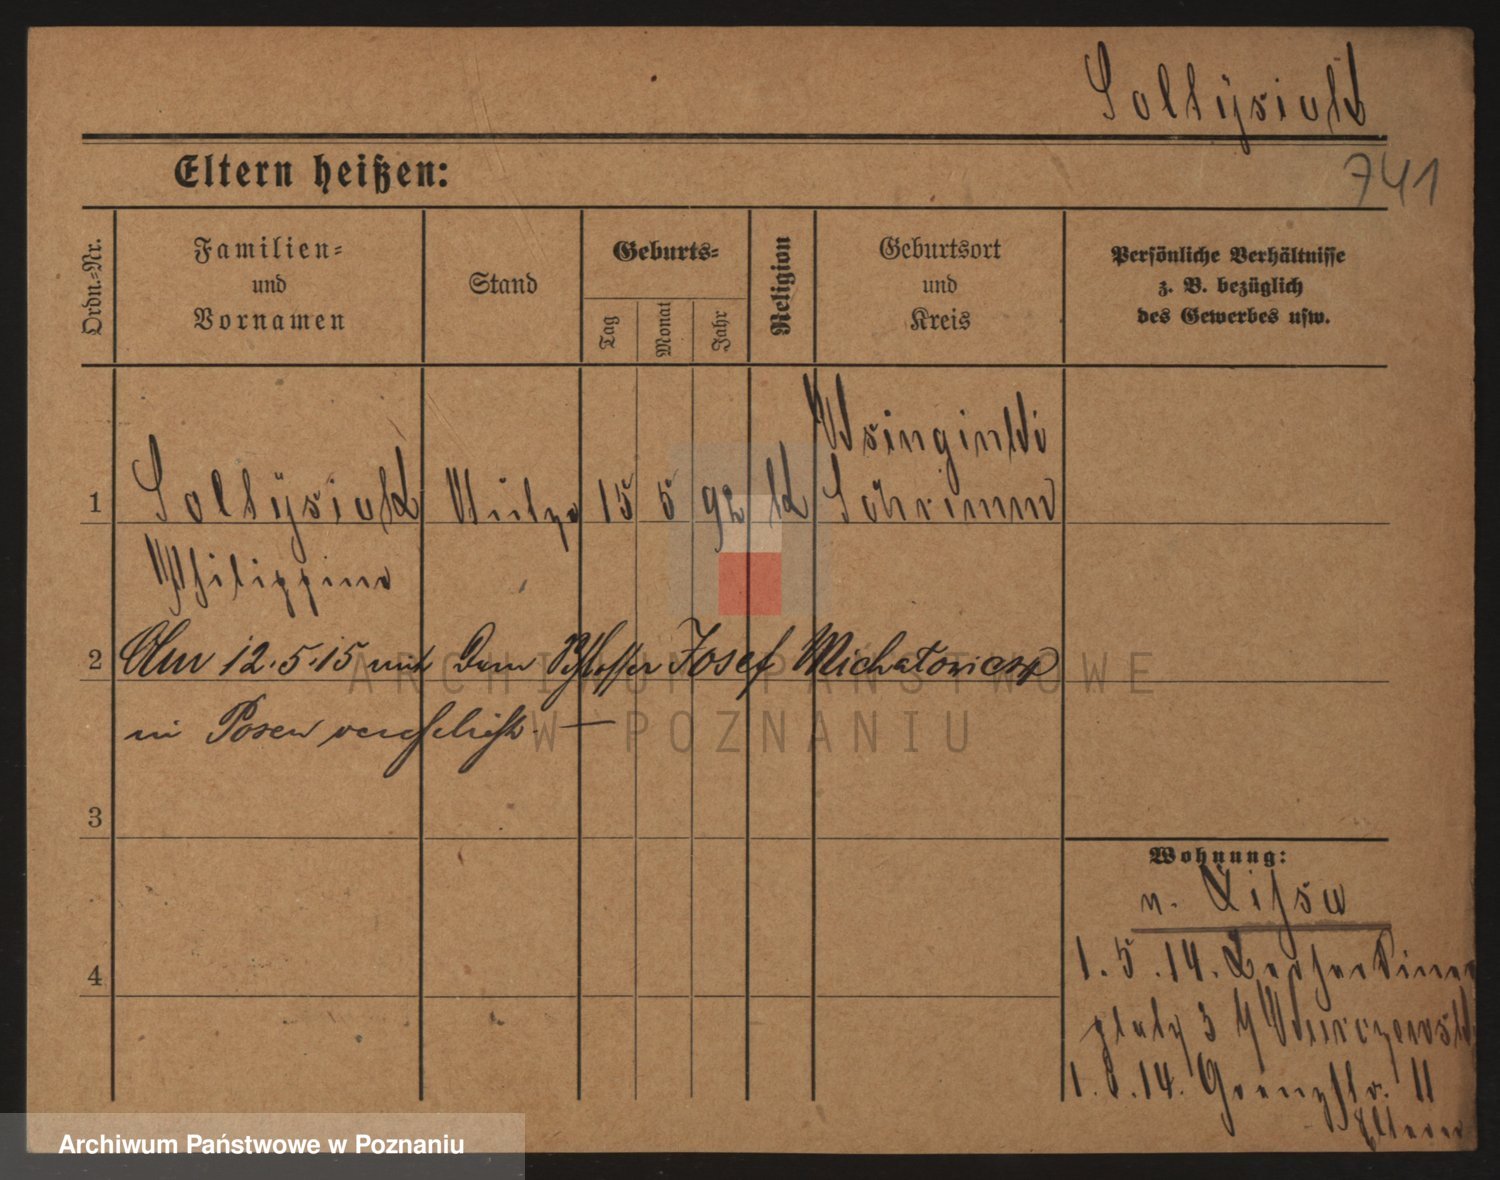 Soltysiak
741
Eltern heißen:
Ordn.-Nr.
Familien-
und
Vornamen
Stand
Geburts-
Tag
Monat
Jahr
Religion
Geburtsort
und
Kreis
Persönliche Verhältnisse
z. B. bezüglich
des Gewerbes usw.
1
Soltysiak
15 5 92 k
Schrimm
Philippine
2
Am 12.5.15 mit dem Schlosser Josef Michałowicz
in Posen verehelicht. —
3
Wohnung:
n. Lissa
1.5.14.
platz 3
4
1. 14. Grenzstr. 11
Eltern
ARCHIWUM PAŃSTWOWE
W POZNANIU
Archiwum Państwowe w Poznaniu